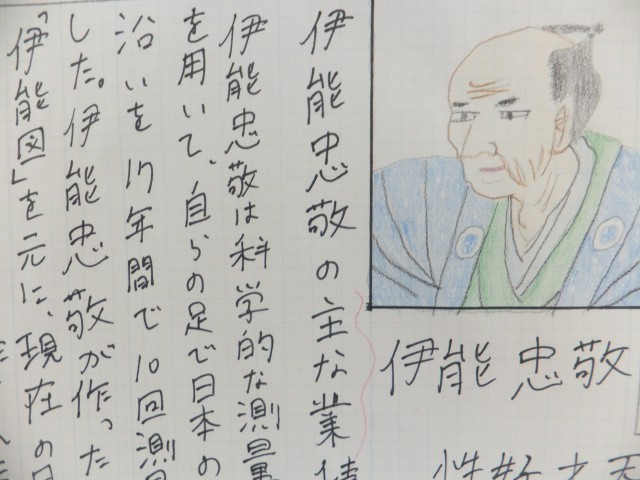 伊能忠敬
伊能忠敬の主な業績
伊能忠敬は科学的な測量
を用いて、自らの足で日本の
沿いを17年間で10回測
した。伊能忠敬が作った
「伊能図」を元に、現在の